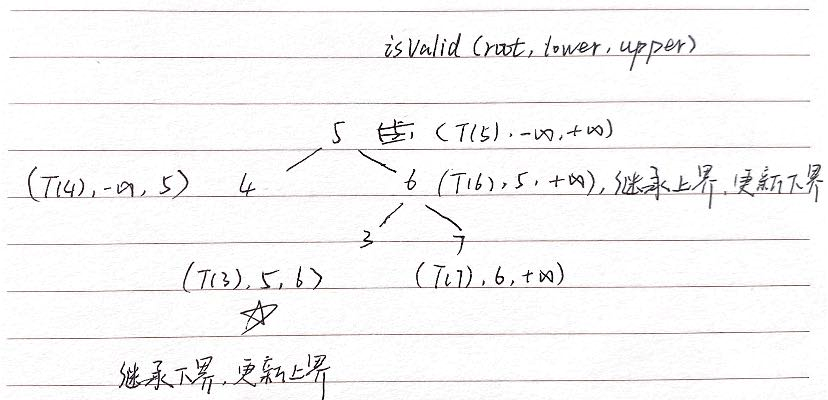 isValid (root, lower, upper)
5 (T(5), -∞, +∞)
(T(4), -∞, 5) 4 6 (T(6), 5, +∞), 继承上界, 更新下界
3 7
(T(3), 5, 6) (T(7), 6, +∞)
继承下界, 更新上界